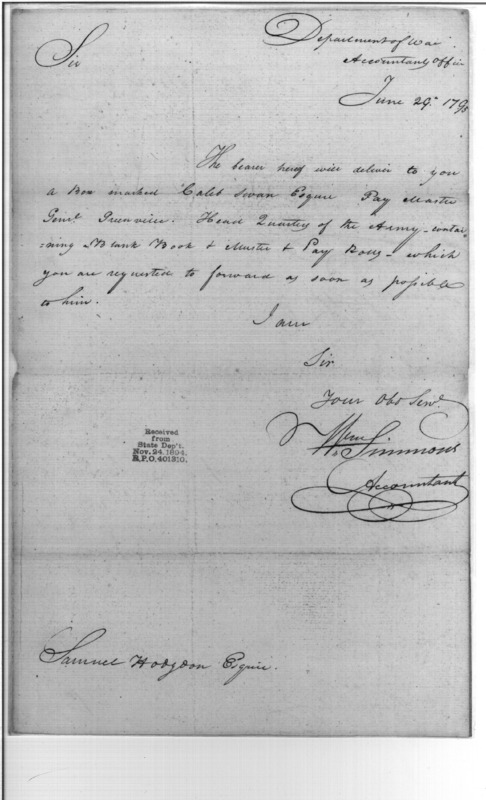 Department of War
Accountants Office
June 29th 179
Sir
The bearer hereof will deliver to you
a Box marked Caleb Swan Esquire Pay Master
Genl. Head Quarters of the Army - contai
=ning Blank Book & Muster & Pay Rolls - which
you are requested to forward as soon as possible
to him.
I am
Sir
Your Obd Servt.
Wm Simmons
Accountant
Received
from
State Dep't.
Nov. 24, 1894.
R.P.O. 401310.
Samuel Hodgdon Esquire.